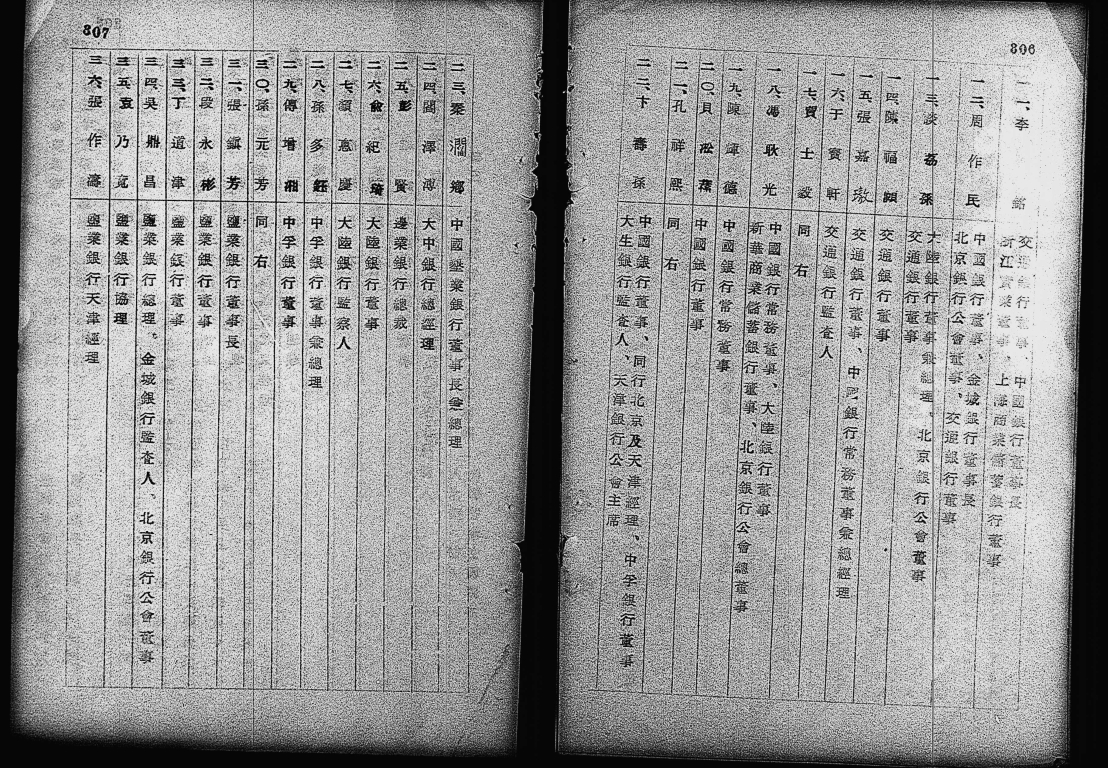 306
一一、李　　銘
交通銀行董事、中國銀行董事長
浙江實業董事、上海商業儲蓄銀行董事
一二、周作民
中國銀行董事、金城銀行董事長
北京銀行公會董事、交通銀行董事
一三、談荔孫
大陸銀行董事兼總理、北京銀行公會董事
交通銀行董事
一四、陳福頤
交通銀行董事
一五、張嘉璈
交通銀行董事、中國銀行常務董事兼總經理
一六、于寶軒
交通銀行監査人
一七、賈士毅
同　右
一八、馮耿光
中國銀行常務董事、大陸銀行董事
新華商業儲蓄銀行董事、北京銀行公會總董事
一九、陳輝德
中國銀行常務董事
二〇、貝淞蓀
中國銀行董事
二一、孔祥熙
同　右
二二、卞壽孫
中國銀行董事、同行北京及天津經理、中孚銀行董事
大生銀行監査人、天津銀行公會主席
307
二三、秦潤鄉
中國墾業銀行董事長兼總理
二四、閻澤溥
大中銀行總經理
二五、彭　賢
邊業銀行總裁
二六、兪紀琦
大陸銀行董事
二七、顏惠慶
大陸銀行監察人
二八、孫多鈺
中孚銀行董事兼總理
二九、傅增湘
中孚銀行董事
三〇、孫元芳
同　右
三一、張鎭芳
鹽業銀行董事長
三二、段永彬
鹽業銀行董事
三三、丁道津
鹽業銀行董事
三四、吳鼎昌
鹽業銀行總理。金城銀行監査人、北京銀行公會董事
三五、袁乃寬
鹽業銀行協理
三六、張作濤
鹽業銀行天津經理